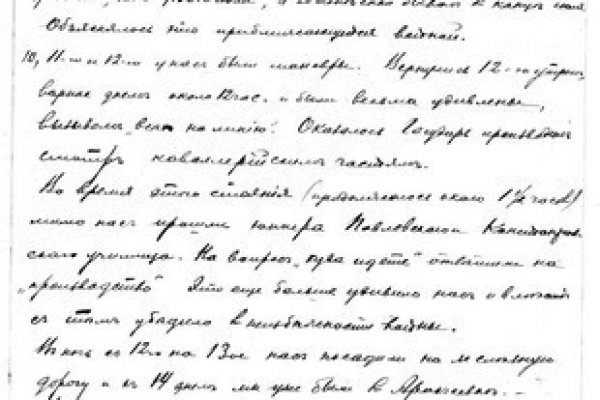 Объяснялось это приближающейся войной.
10, 11-го и 12-го у нас были маневры. Вернулись 12-го утром,
вернее днем около 12 час. и были весьма удивлены,
вызовом „всех на линию". Оказалось Государь производил
смотр кавалерийским частям.
Во время этого стояния (продолжалось около 1½ часов)
мимо нас прошли юнкера Павловского
училища. На вопрос „куда идете" ответили на
„производство" Это еще больше удивило нас и вместе
с тем убедило в неизбежности войны.
В ночь с 12го на 13ое нас посадили на железную
дорогу и с 14 днем мы уже были в